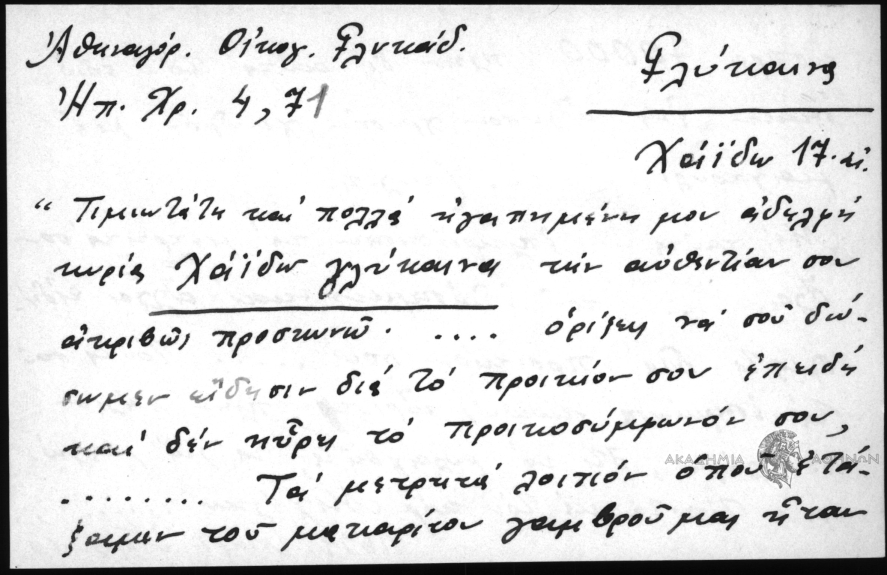 Ἀθηναγόρ. Οἰκογ. Γλυκάδ.
Ἠπ. Χρ. 4, 71
Γλύκαινα
Χάϊδω 17. αἰ.
“ Τιμιωτάτη καί πολλά ἠγαπημένη μου ἀδελφή
κυρία Χάϊδω γλύκαινα τήν αὐθεντίαν σου
ἀκριβῶς προσκυνῶ. .... ὁρίζεις νά σοῦ δώ-
σωμεν εἴδησιν διά τό προικίον σου ἐπειδή
καί δέν ηὗρες τό προικοσύμφωνόν σου,
......... Τά μετρητά λοιπόν ὁποῦ ἐτά-
ξαμεν τοῦ μακαρίτου γαμβροῦ μας ἦταν
ΑΚΑΔΗΜΙΑ ΑΘΗΝΩΝ